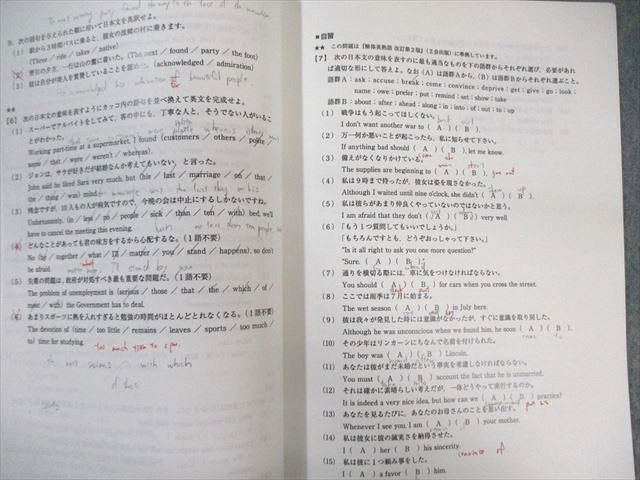 B. 次の語句を与えられた順に用いて日本文を英訳せよ。
(1) 駅から3時間バスに乗ると、彼女の故郷の村に着きます。
(Three / ride / takes / native)
(2) 翌日の夕方、一行は山の麓に着いた。(The next / found / party / the foot)
(3) 彼は自分が美人を賞賛していることを認めた。(acknowledged / admiration)
★★
[6] 次の日本文の意味を表すようにカッコ内の語句を並べ換えて英文を完成せよ。
(1) スーパーでアルバイトをしてみて、客の中にも、丁寧な人と、そうでない人がいることがわかった。
Working part-time at a supermarket, I found (customers / others / polite / some / that / were / weren't / whereas).
(2) ジョンは、サラが好きだが結婚なんか考えてもいない、と言った。
John said he liked Sara very much, but (his / last / marriage / on / that / the / thing / was) mind
(3) 残念ですが、10人もの人が病気ですので、今晩の会は中止にするしかないですね。
Unfortunately, (is / less / no / people / sick / than / ten / with) bed, we'll have to cancel the meeting this evening.
(4) どんなことがあっても君の味方をするから心配するな。(1語不要)
No (by / together / what / I'll / matter / you / stand / happens), so don't be afraid.
(5) 失業の問題は、政府が対処すべき最も重要な問題だ。(1語不要)
The problem of unemployment is (serious / those / that / the / which / of / most / with) the Government has to deal.
(6) あまりスポーツに熱を入れすぎると勉強の時間がほとんどとれなくなる。(1語不要)
The devotion of (time / too little / remains / leaves / sports / too much / to) time for studying.
■自習
★★ この問題は『解体英熟語 改訂第2版』(Z会出版)に準拠しています。
[7] 次の日本文の意味を表すのに最も適当なものを下の語群からそれぞれ選び、必要があれば適切な形にして答えよ。なお(A)は語群Aから、(B)は語群Bからそれぞれ選ぶこと。
語群A：ask；accuse；break；come；convince；deprive；get；give；go；look；name；owe；prefer；put；remind；set；show；take
語群B：about；after；ahead；along；in；into；of；out；to；up
(1) 戦争はもう起こってほしくない。
I don't want another war to ( A ) ( B ).
(2) 万一何か悪いことが起こったら、私に知らせて下さい。
If anything bad should ( A ) ( B ), let me know.
(3) 備えがなくなりかけている。
The supplies are beginning to ( A ) ( B ).
(4) 私は9時まで待ったが、彼女は姿を現さなかった。
Although I waited until nine o'clock, she didn't ( A ) ( B ).
(5) 私は彼らがあまり仲良くやっていないのではないかと思う。
I am afraid that they don't ( A ) ( B ) very well
(6) 「もう1つ質問してもいいでしょうか。」
「もちろんですとも、どうぞおっしゃって下さい。」
"Is it all right to ask you one more question?"
"Sure. ( A ) ( B )."
(7) 通りを横切る際には、車に気をつけなければならない。
You should ( A ) ( B ) for cars when you cross the street.
(8) ここでは雨季は7月に始まる。
The wet season ( A ) ( B ) in July here.
(9) 彼は我々が発見した時には意識がなかったが、すぐに意識を取り戻した。
Although he was unconscious when we found him, he soon ( A ) ( B ).
(10) その少年はリンカーンにちなんで名前を付けられた。
The boy was ( A ) ( B ) Lincoln.
(11) あなたは彼がまだ未婚だという事実を考慮しなければならない。
You must ( A ) ( B ) account the fact that he is unmarried.
(12) それは確かに素晴らしい考えだが、一体どうやって実行するのか。
It is indeed a very nice idea, but how can we ( A ) ( B ) practice?
(13) あなたを見るたびに、あなたのお母さんのことを思い出す。
Whenever I see you, I am ( A ) ( B ) your mother.
(14) 私は彼女に彼の誠実さを納得させた。
I ( A ) her ( B ) his sincerity.
(15) 私は彼に1つ頼み事をした。
I ( A ) a favor ( B ) him.